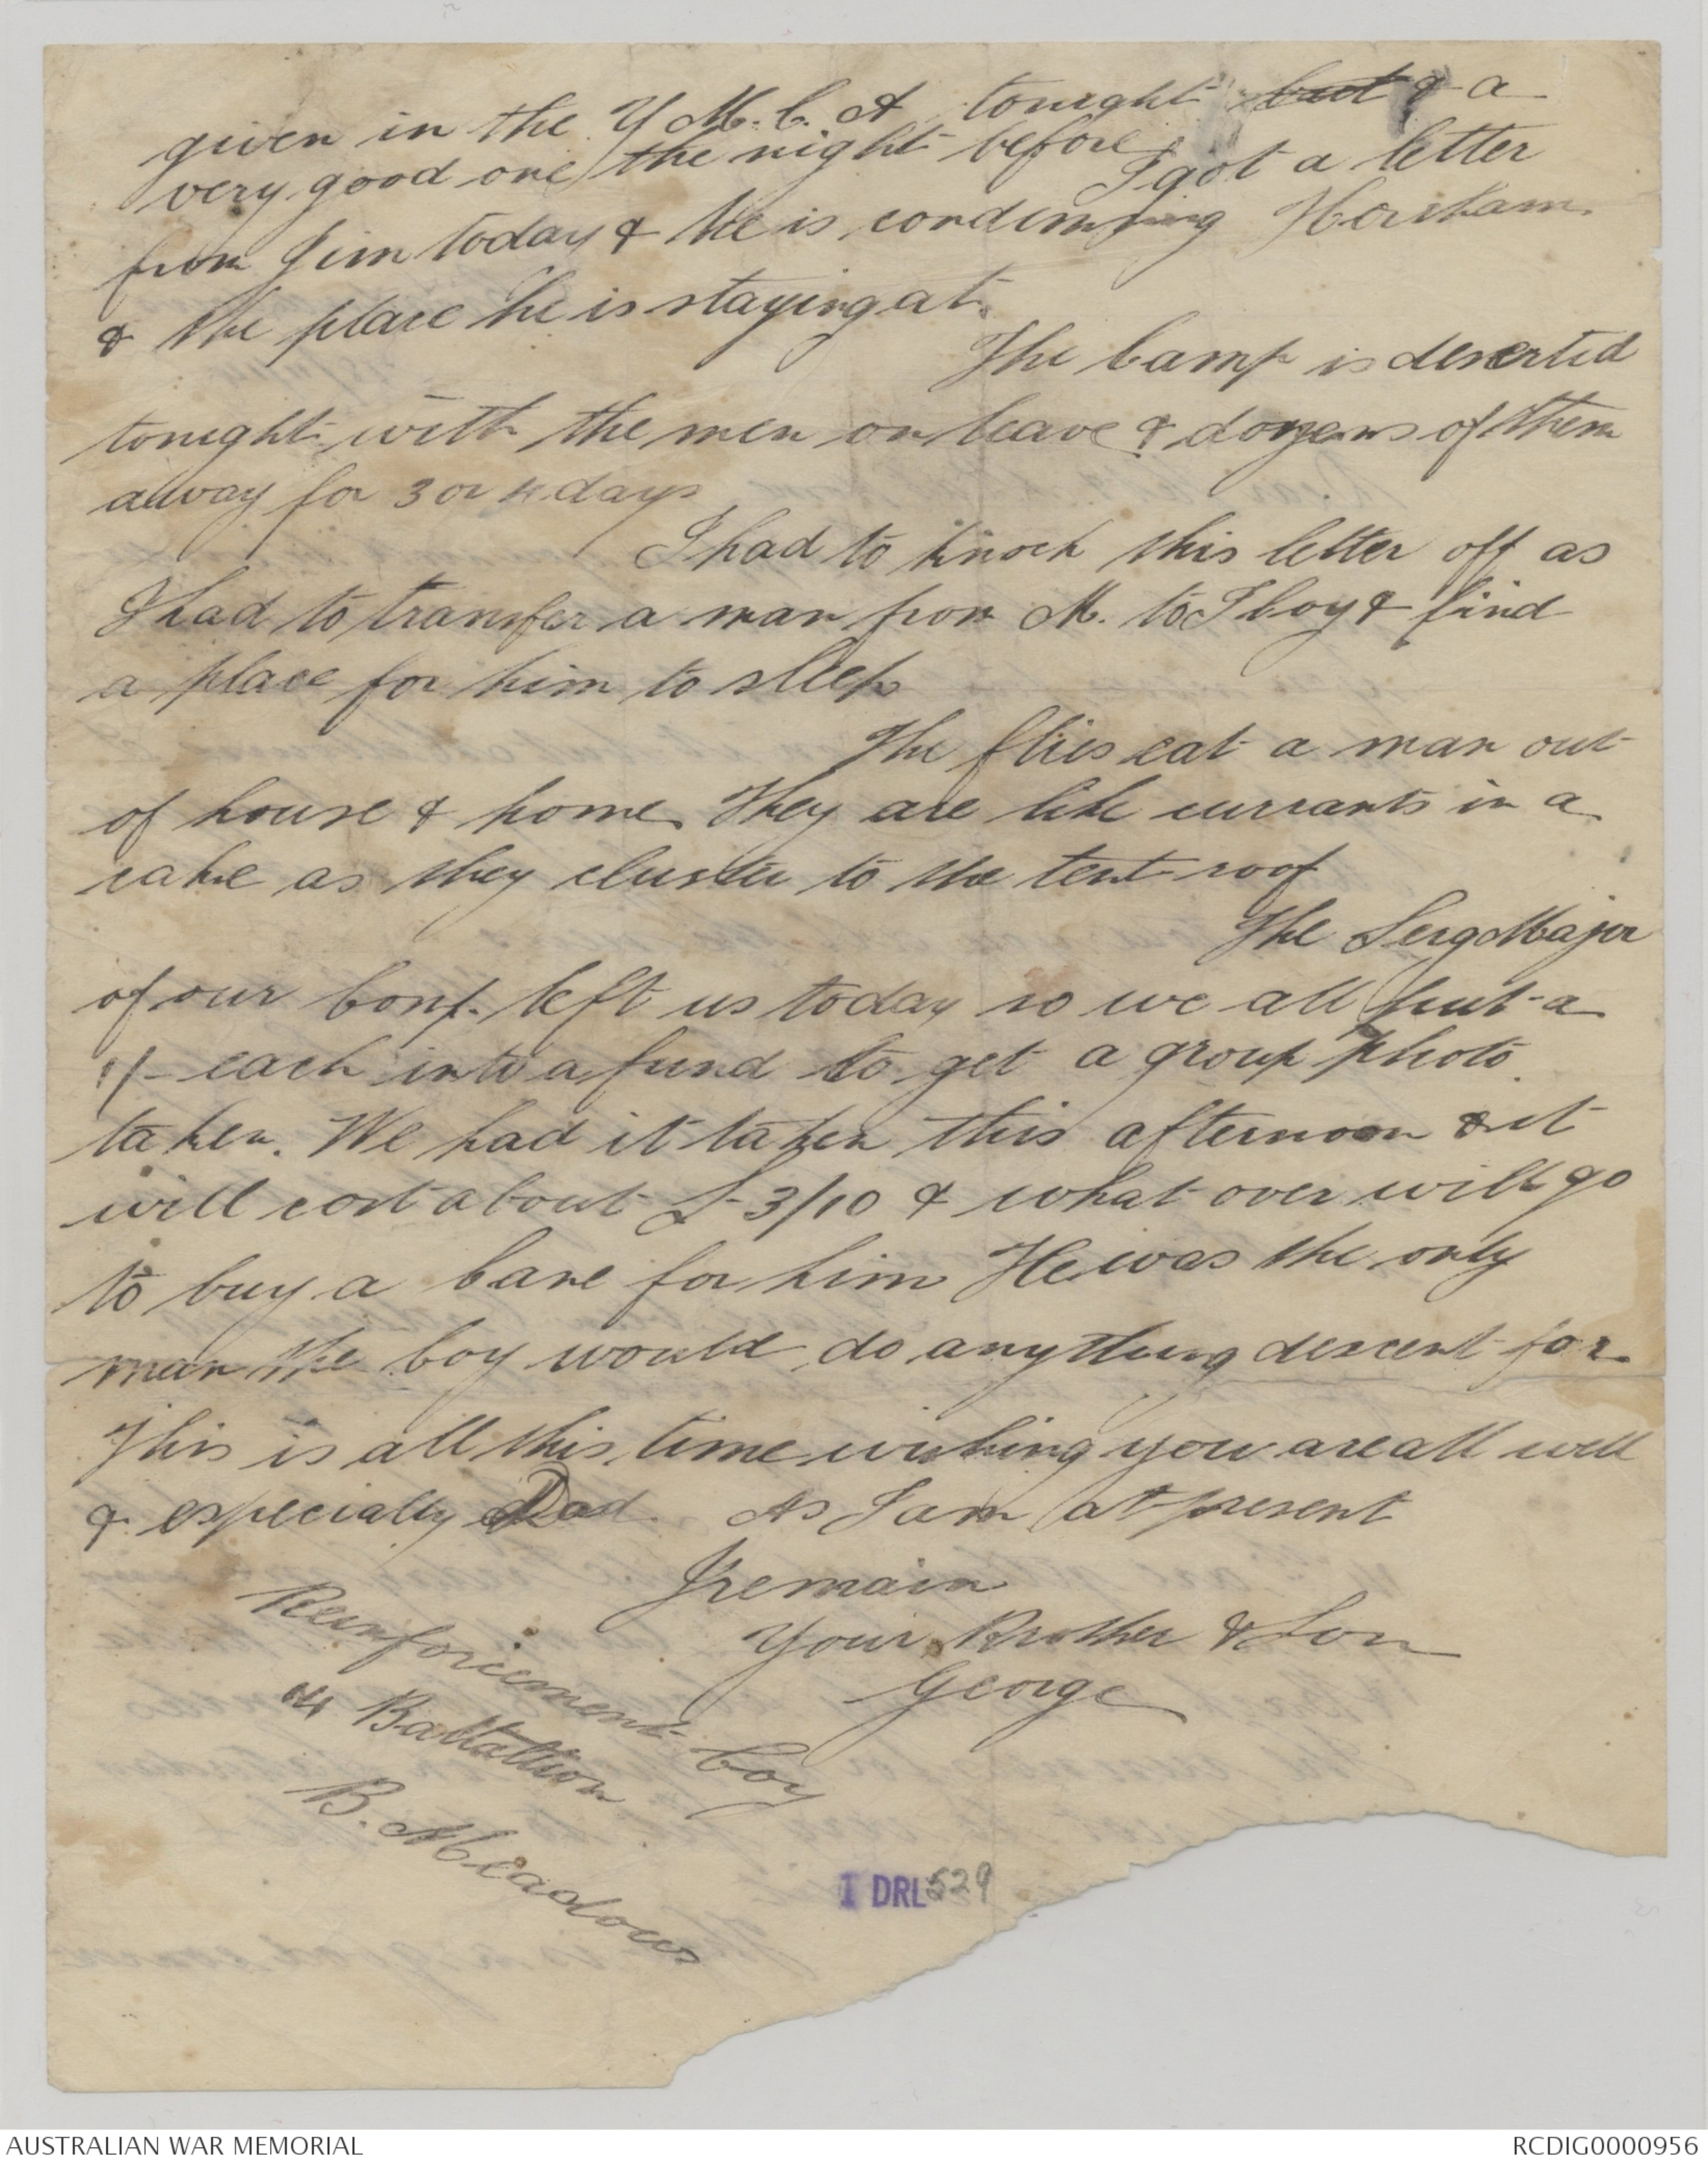 given in the Y M. C. A tonight but & a
very good one the night before
I got a letter
from Jim today & he is condemning Horsham.
& the place he is staying at.
The Camp is deserted
tonight with the men on leave & dozens of them
away for 3 or 4 days
I had to knock this letter off as
I had to transfer a man from M. to I Coy & find
a place for him to sleep
The flies eat a man out
of house & home. They are like currants in a
cake as they cluster to the tent roof
The Serg Major
of our Comp. left us today so we all put a
1/- each into a fund to get a group photo
taken. We had it taken this afternoon & it
will cost about £ 3/10 & what over will go
to buy a Cane for him He was the only
man the Coy would do anything descent for.
This is all this time wishing you are all well
& especially Dad. As I am at present
I remain
Your Brother & Son
George
Reinforcement Coy
14 Battallion
B. Meadows
I DRL 529
AUSTRALIAN WAR MEMORIAL
RCDIG0000956